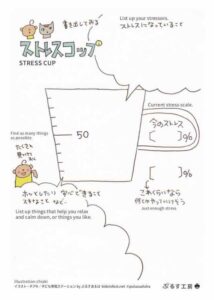 書き出してみる
List up your stressors,
ストレスになっていること
ストレスコップ
STRESS CUP
Current stress scale.
今のストレス
[ ]%
Find as many things
as possible.
たくさん
書いてみてね
50
[ ]%
ホッとしたり 安心できること
スキなこと など…
これくらいなら
何とかやっていけそう
Just enough stress
List up things that help you relax
and calm down, or things you like.
Illustration chiaki
ぷるす工房